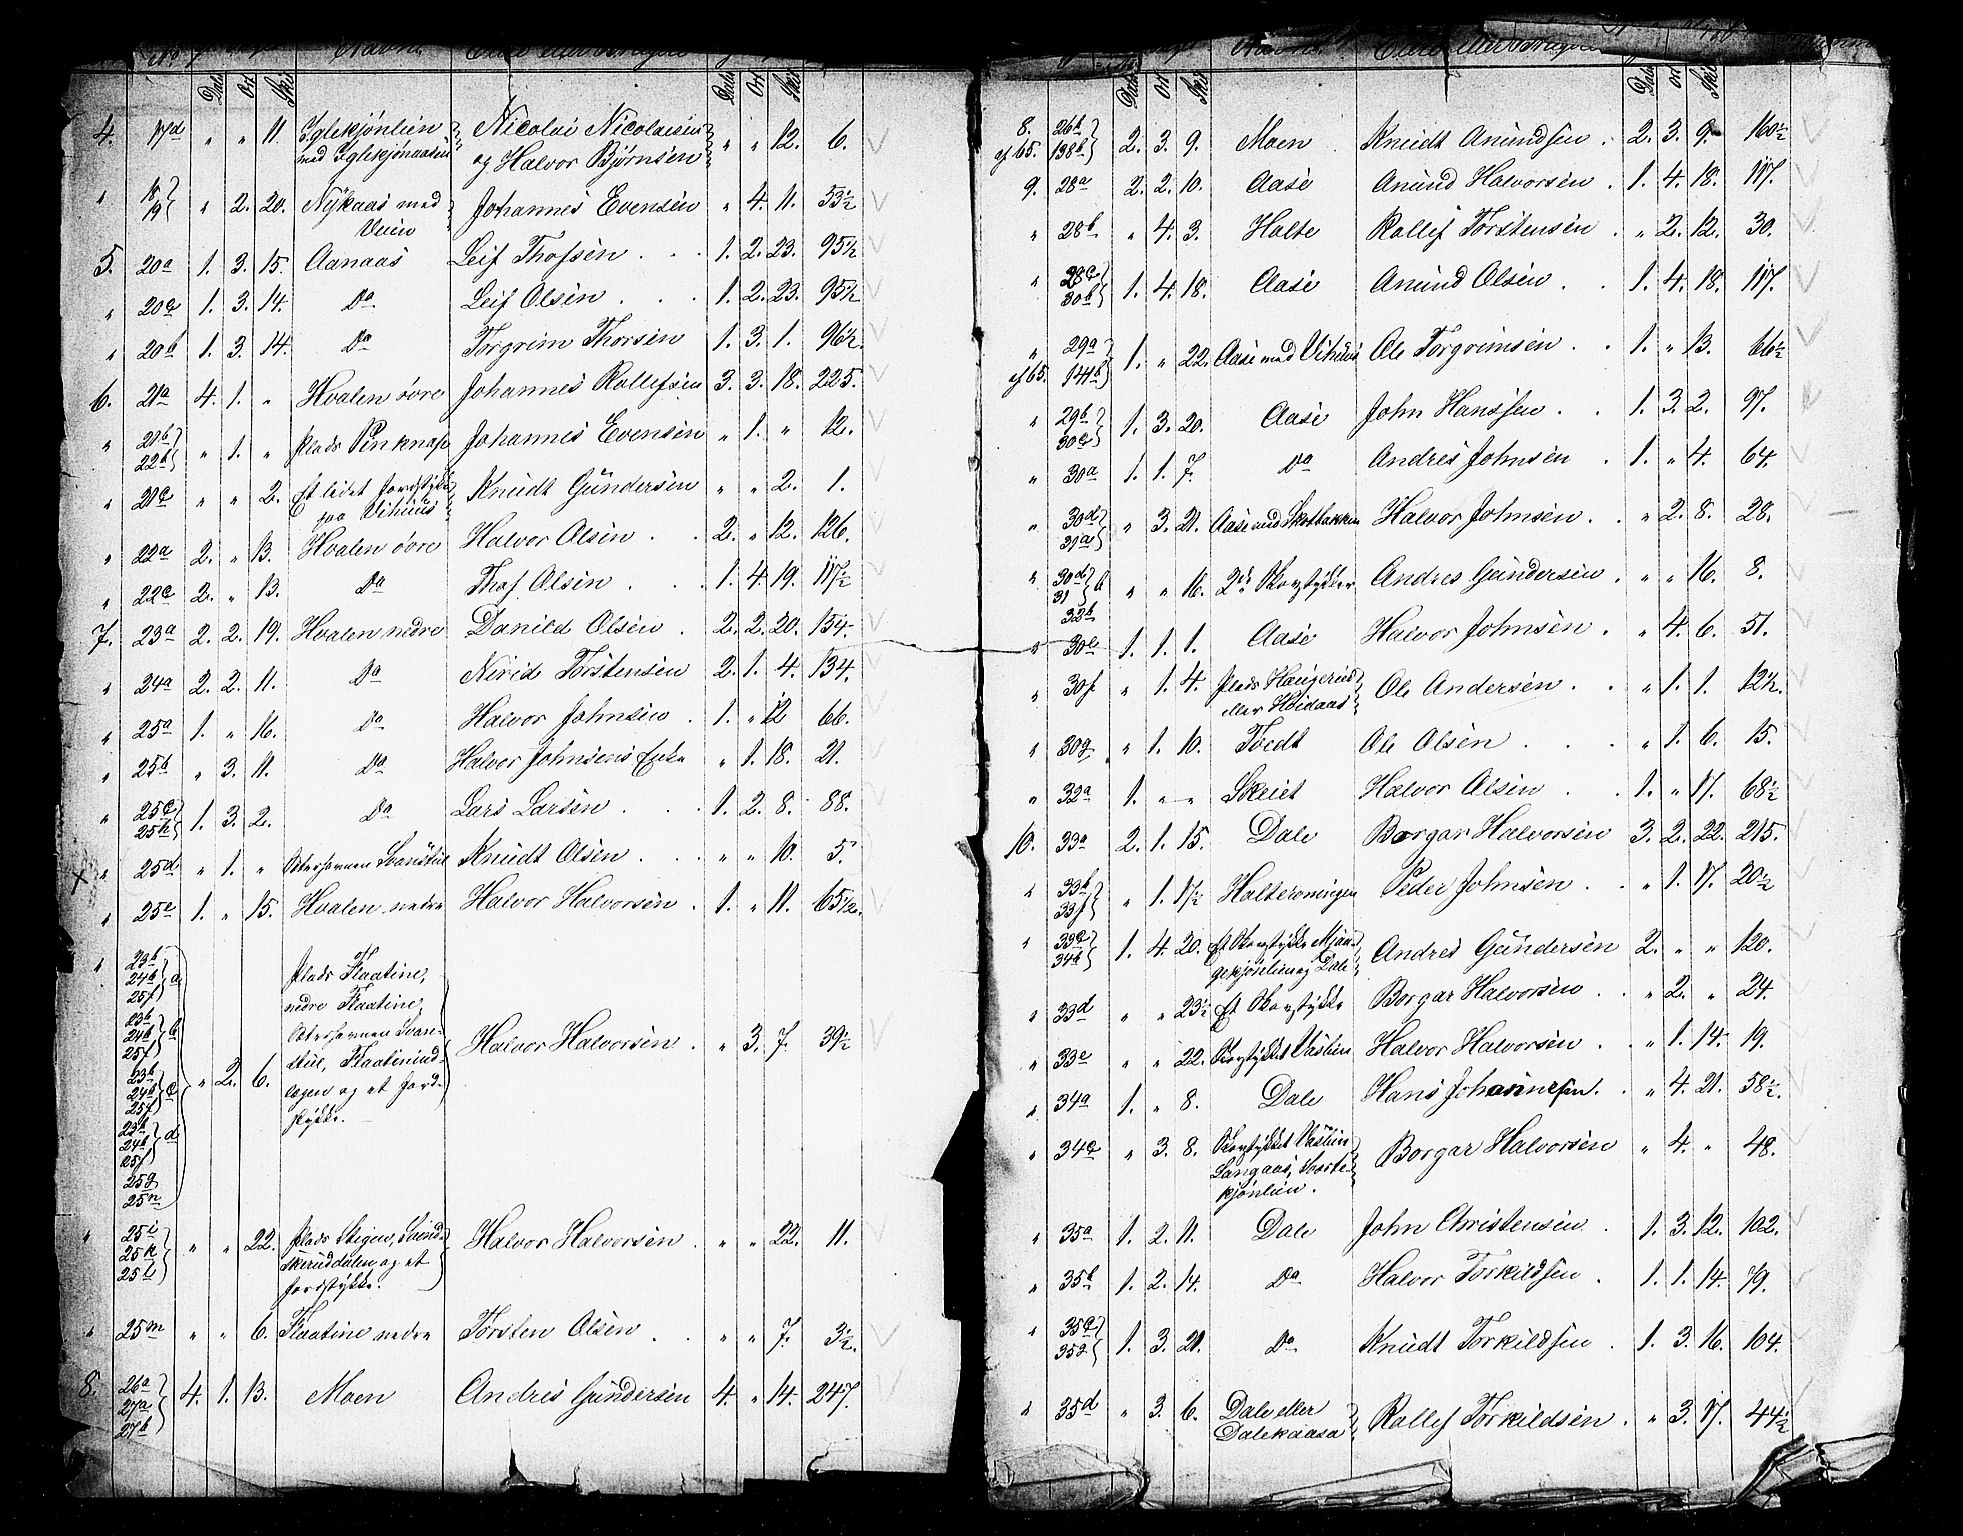 No Navn. Eller Bruger
Daler Ort Skil Daler Ort Skil
4. 17d " " 11. Iglekjønlien Nicolai Nicolaisen " " 12. 6.
med Iglekjønaasen og Halvor Bjørnsen
" 18 19 " 2. 20. Nykaas med Johannes Evensen " 4. 11. 53½
Veien
5. 20a 1. 3. 15. Aanaas Leif Thofsen . . 1. 2. 23. 95½
" 20c 1. 3. 14. Do Leif Olsen . . . 1. 2. 23. 95½
" 20b 1. 3. 14. Do Torgrim Thorsen 1. 3. 1. 96½.
6. 21a 4. 1. " Hvalen øvre Johannes Rollefsen 3. 3. 18. 225.
" 21b 22b " 1. " Plads Penknap Johannes Evensen " 1. " 12.
" 21c " " 2. Et lidet Jordstykke Knudt Gundersen " " 2. 1.
paa Vihuus
" 22a 2. " 13. Hvalen øvre Halvor Olsen . . 2. " 12. 126.
" 22c 2. " 13. Do Thof Olsen . . 1. 4. 19. 117½
7. 23a 2. 2. 19. Hvalen nedre Danild Olsen . 2. 2. 20. 154.
" 24a 2. 2. 11. Do Nirid Torstensen 2. 1. 4. 134.
" 25a 1. " 16. Do Halvor Johnsen . 1. " 12 66.
" 25b " 3. 11. Do Halvor Johnsens Enke " 1. 18. 21.
" 25c 25h 1. 3. 2. Do Lars Larsen . . 1. 2. 8. 88.
x " 25d " 1. " Svanstul Knudt Olsen . . . " " 10. 5.
" 25e 1. " 15. Hvalen nedre Halvor Halvorsen . 1. " 11. 65½.
" 23b 24b 25f a Plads Flaatine,
nedre Flaatine,
23b 24b 25f b Svan-
stul, Halvor Halvorsen . " 3. 7. 39½
23b 24b 25f c " 2. 6. og et Jord-
stykke.
23b 24b 25f d
25g
25n
" 25i 25k 25l " " 22. Plads Stigen, Svind- Halvor Halvorsen . " " 22. 11.
skeruddalen og et
Jordstykke.
" 25m " " 6. Flaatine nedre Torsten Olsen . . " " 7. 3½.
8. 26a 27a 27b 4. 1. 13. Moen Andres Gundersen 4. " 14. 247.
Navn. Eller Bruger
Daler Ort Skil Daler Ort Skil
8. 26b 2. 3. 9. Moen Knudt Anundsen . 2. 3. 9. 160½
af 65. 138b
9. 28a 2. 2. 10. Aase Anund Halvorsen . 1. 4. 18. 117.
" 28b " 4. 3. Holte Rollef Torstensen . " 2. 12. 30.
" 28c 30b 1. 4. 18. Aase Anund Olsen . . 1. 4. 18. 117.
" 29a 1. " 22. Aase med Vihuus Ole Torgrimsen . . 1. " 13. 66½
af 65. 141b
" 29b 30c 1. 3. 20. Aase John Hanssen . . 1. 3. 2. 97.
" 30a 1. 1. 7. Do Andres Johnsen . 1. " 4. 64.
" 30d 31a " 3. 21. Aase med Skotbakken Halvor Johnsen . . " 2. 8. 28.
" 30d 31 b " " 16. 2de Skovstykker Andres Gundersen . " " 16. 8.
32b
" 30e 1. 1. 1. Aase Halvor Johnsen . " 4. 6. 51.
" 30f " 1. 4. Plads Haugerud Ole Andersen . . " 1. 1. 12½.
eller Heidaas
" 30g " 1. 10. Tvedt Ole Olsen . . . " 1. 6. 15.
" 32a 1. " " Skeiet Halvor Olsen . . 1. " 17. 68½
10. 33a 2. 1. 15. Dale Borgar Halvorsen 3. 2. 22. 215.
" 33b 33f " 1. 17½ Holteroningen Peder Johnsen . . " 1. 17. 20½
" 33c 34b 1. 4. 20. Et Skovstykke Mjaa- Andres Gundersen 2. " " 120.
gekjønlien og Dale
" 33d " " 23½ Et Skovstykke Borgar Halvorsen . . " 2. " 24.
" 33e " " 22. Skovstykket Vaslien Halvor Halvorsen . . " 1. 14. 19.
" 34a 1. " 8. Dale Hans Johannesen. . " 4. 21. 58½.
" 34c " 3. 8. Skovstykket Vaslien Borgar Halvorsen " 4. " 48.
Langaas, Svarte-
kjønlien.
" 35a 1. 2. 11. Dale John Christensen . 1. 3. 12. 102.
" 35b 1. 2. 14. Do Halvor Torkildsen . 1. 1. 14. 79.
" 35c 35g 1. 3. 21. Do Knudt Torkildsen . 1. 3. 16. 104.
" 35d " 3. 6. Dale eller Rollef Torkildsen . " 3. 17. 44½
Dalekaasa